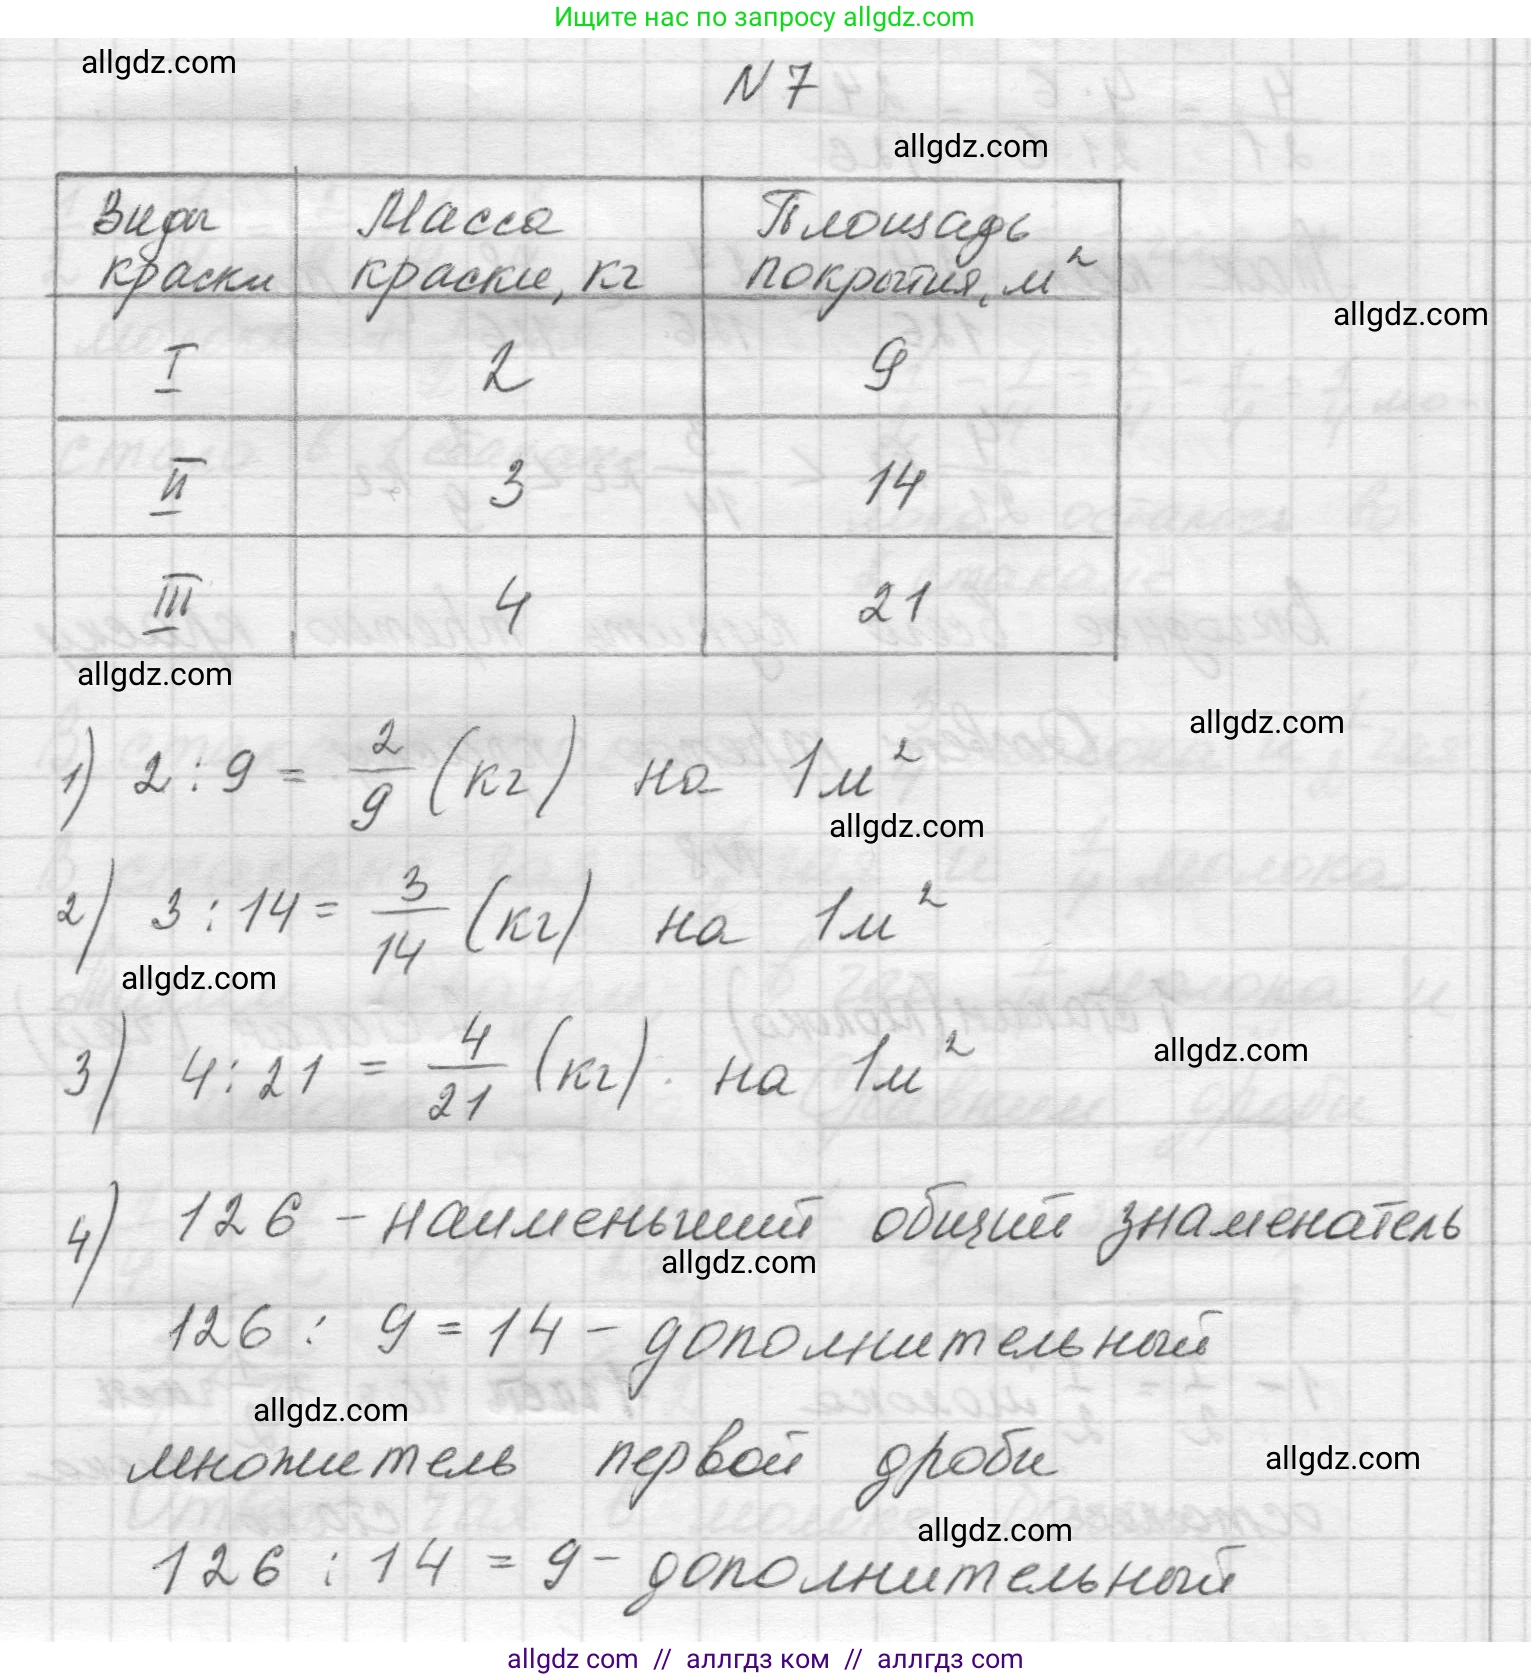 Ищите нас по запросу allgdz.com
allgdz.com
N 7
allgdz.com
Виды краски | Масса краски, кг | Площадь покрытия, м²
allgdz.com
I | 2 | 9
II | 3 | 14
III | 4 | 21
allgdz.com
allgdz.com
1) 2 : 9 = 2/9 (кг) на 1м²
allgdz.com
2) 3 : 14 = 3/14 (кг) на 1м²
allgdz.com
3) 4 : 21 = 4/21 (кг) на 1м²
allgdz.com
4) 126 – наименьший общий знаменатель
allgdz.com
126 : 9 = 14 – дополнительный
allgdz.com
множитель первой дроби
allgdz.com
allgdz.com
126 : 14 = 9 – дополнительный
allgdz com // аллгдз ком // аллгдз com